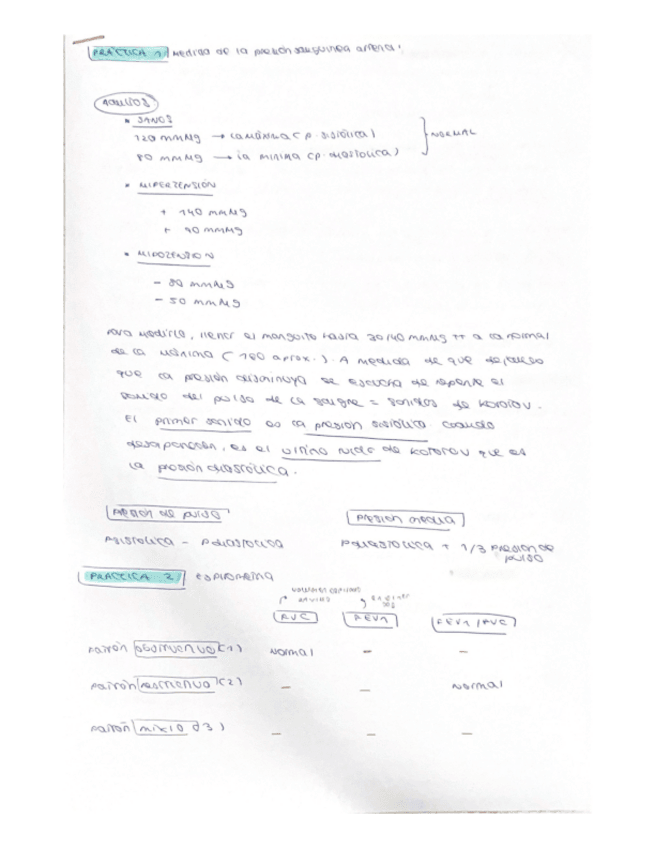 PRÁCTICA 1 Medida de la presión sanguínea arterial.
ADULTOS
• SANOS
120 mmHg → la máxima (p. sistólica)
80 mmHg → la mínima (p. diastólica)
NORMAL
• HIPERTENSIÓN
+ 140 mmHg
+ 90 mmHg
• HIPOTENSIÓN
- 90 mmHg
- 50 mmHg
Para medirlo, llenar el manguito hasta 30/40 mmHg ++ a la normal
de la máxima (180 aprox.). A medida de que dejamos
que la presión disminuya se escucha de repente el
sonido del pulso de la sangre = sonidos de Korotov.
El primer sonido es la presión sistólica cuando
desaparecen, es el último ruido de Korotov que es
la presión diastólica.
Presión de pulso
Presión media
Psistolica - Pdiastolica
Pdiastolica + 1/3 presión de
pulso
PRÁCTICA 2 Espirometría
FVC
FEV1
FEV1/FVC
Patrón obstructivo (1) Normal - -
Patrón restrictivo (2) - - Normal
Patrón mixto (3) - - -